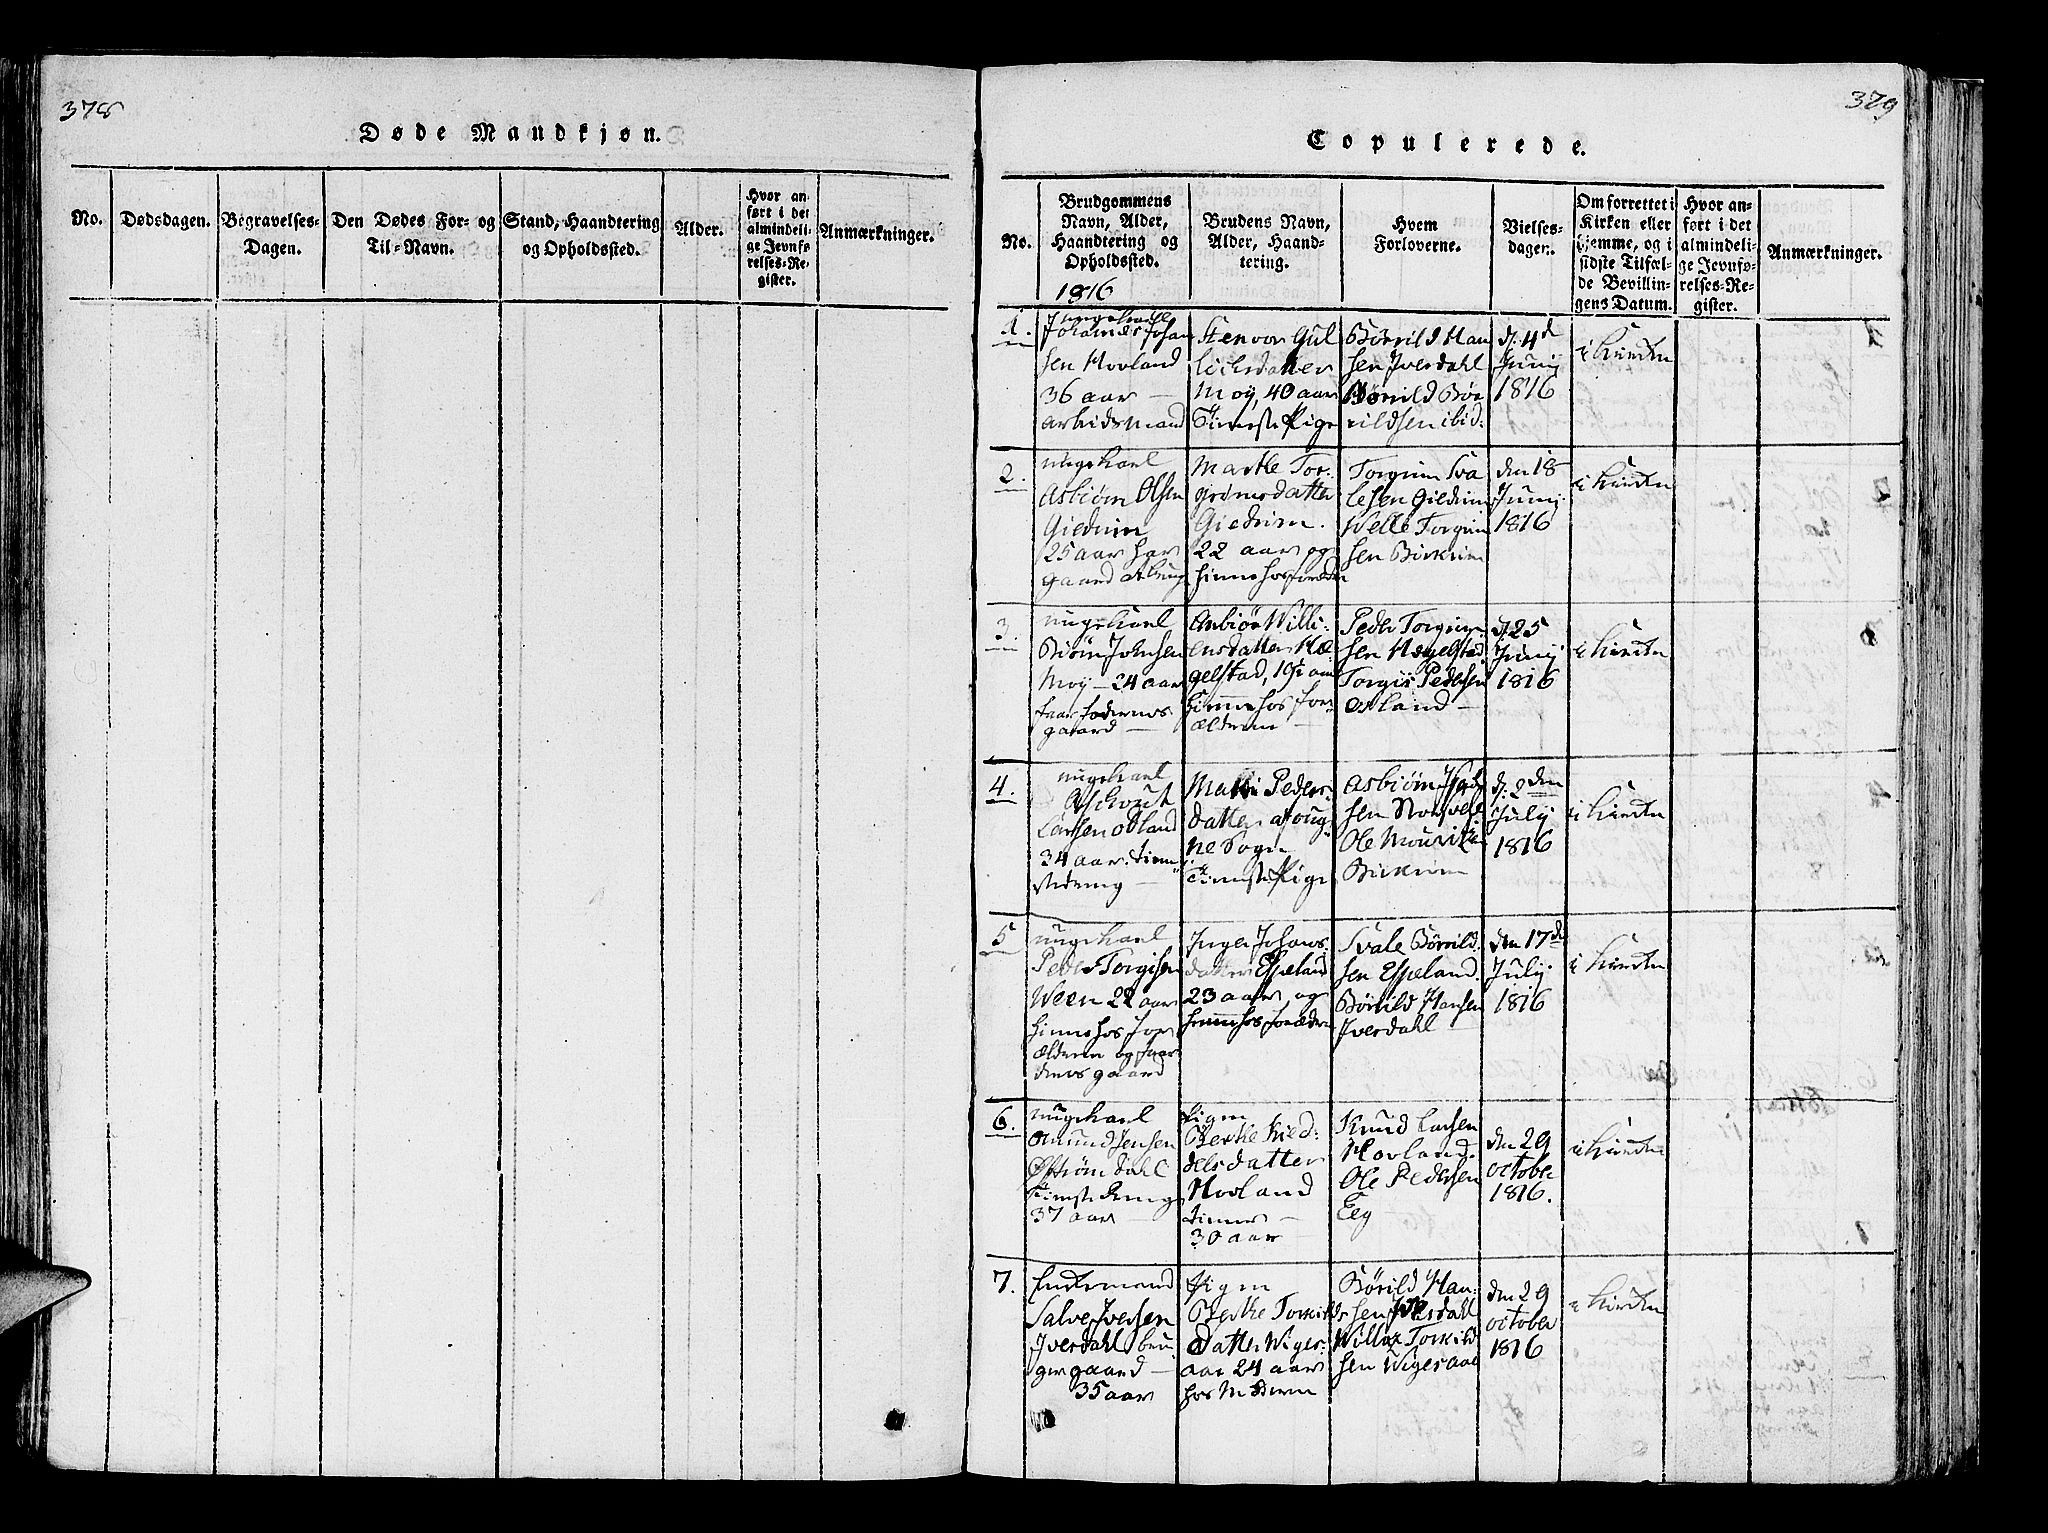 378
Døde Mandkjøn.
No.
Dødsdagen.
Begravelses-
Dagen.
Den Dødes For- og
Til-Navn.
Stand, Haandtering
og Opholdssted.
Alder.
Hvor an-
ført i det
almindeli-
ge Jevnfø-
relses-Re-
gister.
Anmærkninger.
379
Copulerede.
No.
Brudgommens
Navn, Alder,
Haandtering og
Opholdssted.
1816
Brudens Navn,
Alder, Haand-
tering.
Hvem
Forloverne.
Vielses-
dagen.
Om forrettet i
Kirken eller
hjemme, og i
sidste Tilfæl-
de Bevillin-
gens Datum.
Hvor an-
ført i det
almindeli-
ge Jevnfø-
relses-Re-
gister.
Anmærkninger.
1.
ungekarl
Johannes Johan
sen Hovland
36 aar
arbeidsmand
Stenvor Gul
leichsdatter
Moÿ, 40 aar
Tieneste Pige
Børrild Han
sen Iverdahl
Børrild Bør
rildsen ibid:
d: 4d
Junij
1816
i Kirken
2.
ungekarl
Asbiørn Olsen
Giedrim
25 aar har
gaard at bruge
Marthe Tor:
grimsdatter
Giedrim.
22 aar og
hiemme hos forældre
Torgrim Sva
lesen Giedrim
Torgrim
sen Birkrim
den 18
Junij
1816
i Kirken
3.
ungekarl
Biørn Johnsen
Moÿ - 24 aar
faar faderens
gaard
Willi:
ensdatter Hæ
gelstad, 19½ aar
hiemme hos for
ældrene
Peder Torgrim
sen Hægelstad
Torgis Pedersen
Østland
d: 25
Junij
1816
i Kirken
4.
ungekarl
Larsen
34 aar. tiene
stedreng
Peders
datter
ne Sogn
Tieneste Pige
Asbiørn
sen
Ole
Birkrim
d: 2den
Julÿ
1816
i Kirken
5
ungekarl
Peder Torgisen
Ween 22 aar
hiemme hos for
ældrene og faar
deres gaard
Inger Johans
datter Espeland
23 aar og
hiemme hos forældre
Svale Børrild
sen Espeland
Børrild Hansen
Iverdahl
den 17de
Julÿ.
1816
i Kirken
6.
ungekarl
Omund Jensen
Tieneste dreng
37 aar
Pigen
Berthe
delsdatter
Hovland
tiener
30 aar
Knud Larsen
Hovland.
Ole Pedersen
Eeg
den 29
october
1816.
i Kirken
7.
Enkemand
Salve Iversen
Iverdahl bru
ger gaard
35 aar
Pigen
Berthe Torkilds
datter Wiges-
aae 24 aar
hos Moderen
Børrild Han:
sen Iverdahl
Torkild
sen Wigesaae
den 29
october
1816
i Kirken